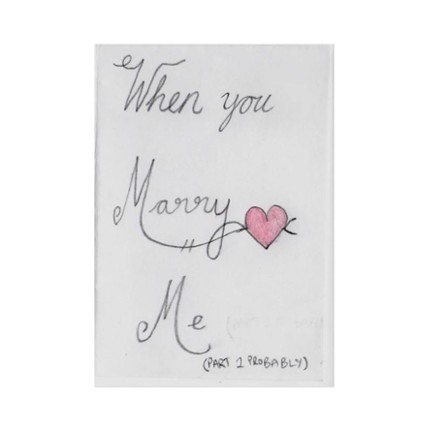 When you
Marry
Me
(PART 1 PROBABLY)